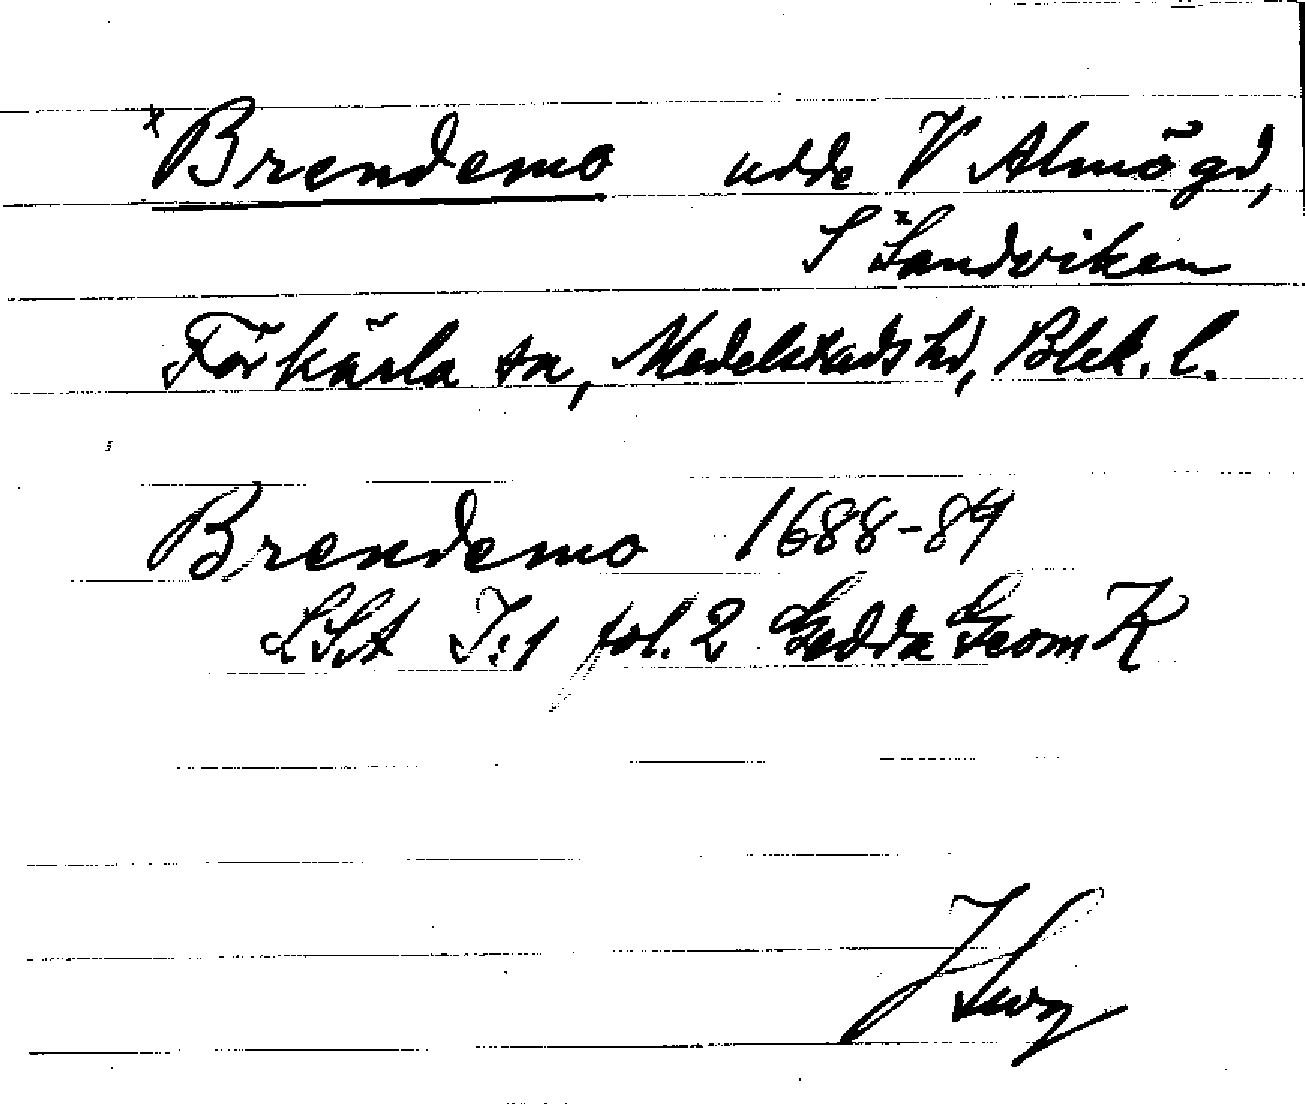 x Brendemo udde V Almö gd,
S x Sandviken
Förkärla sn, Medelstads hd, Blek. l.
Brendemo 1688-89
LSA I:1 fol. 2 Gedda Geom K